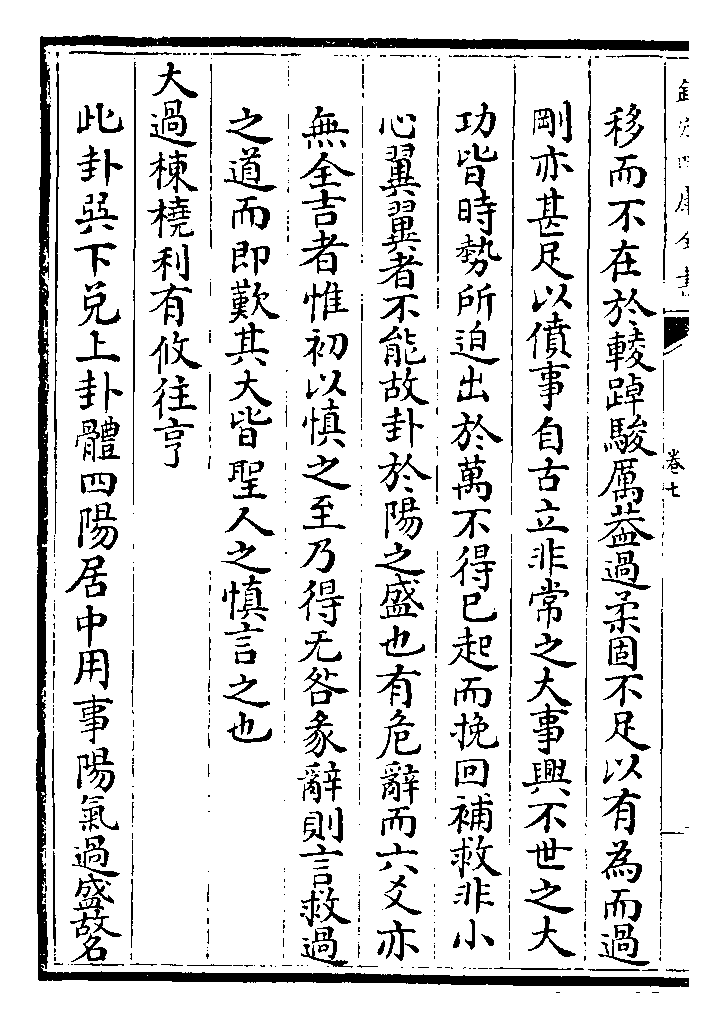 欽定四庫全書
卷七
移而不在於輘踔駿厲葢過柔固不足以有為而過
剛亦甚足以僨事自古立非常之大事興不世之大
功皆時勢所迫出於萬不得已起而挽回補救非小
心翼翼者不能故卦於陽之盛也有危辭而六爻亦
無全吉者惟初以慎之至乃得无咎彖辭則言救過
之道而即歎其大皆聖人之慎言之也
大過棟橈利有攸往亨
此卦巽下兌上卦體四陽居中用事陽氣過盛故名